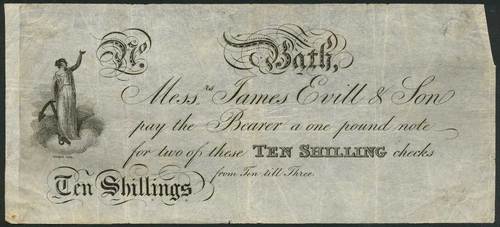 No. Bath,
Messrs James Evill & Son
pay the Bearer a one pound note
for two of these TEN SHILLING checks
from Ten till Three.
Ten Shillings